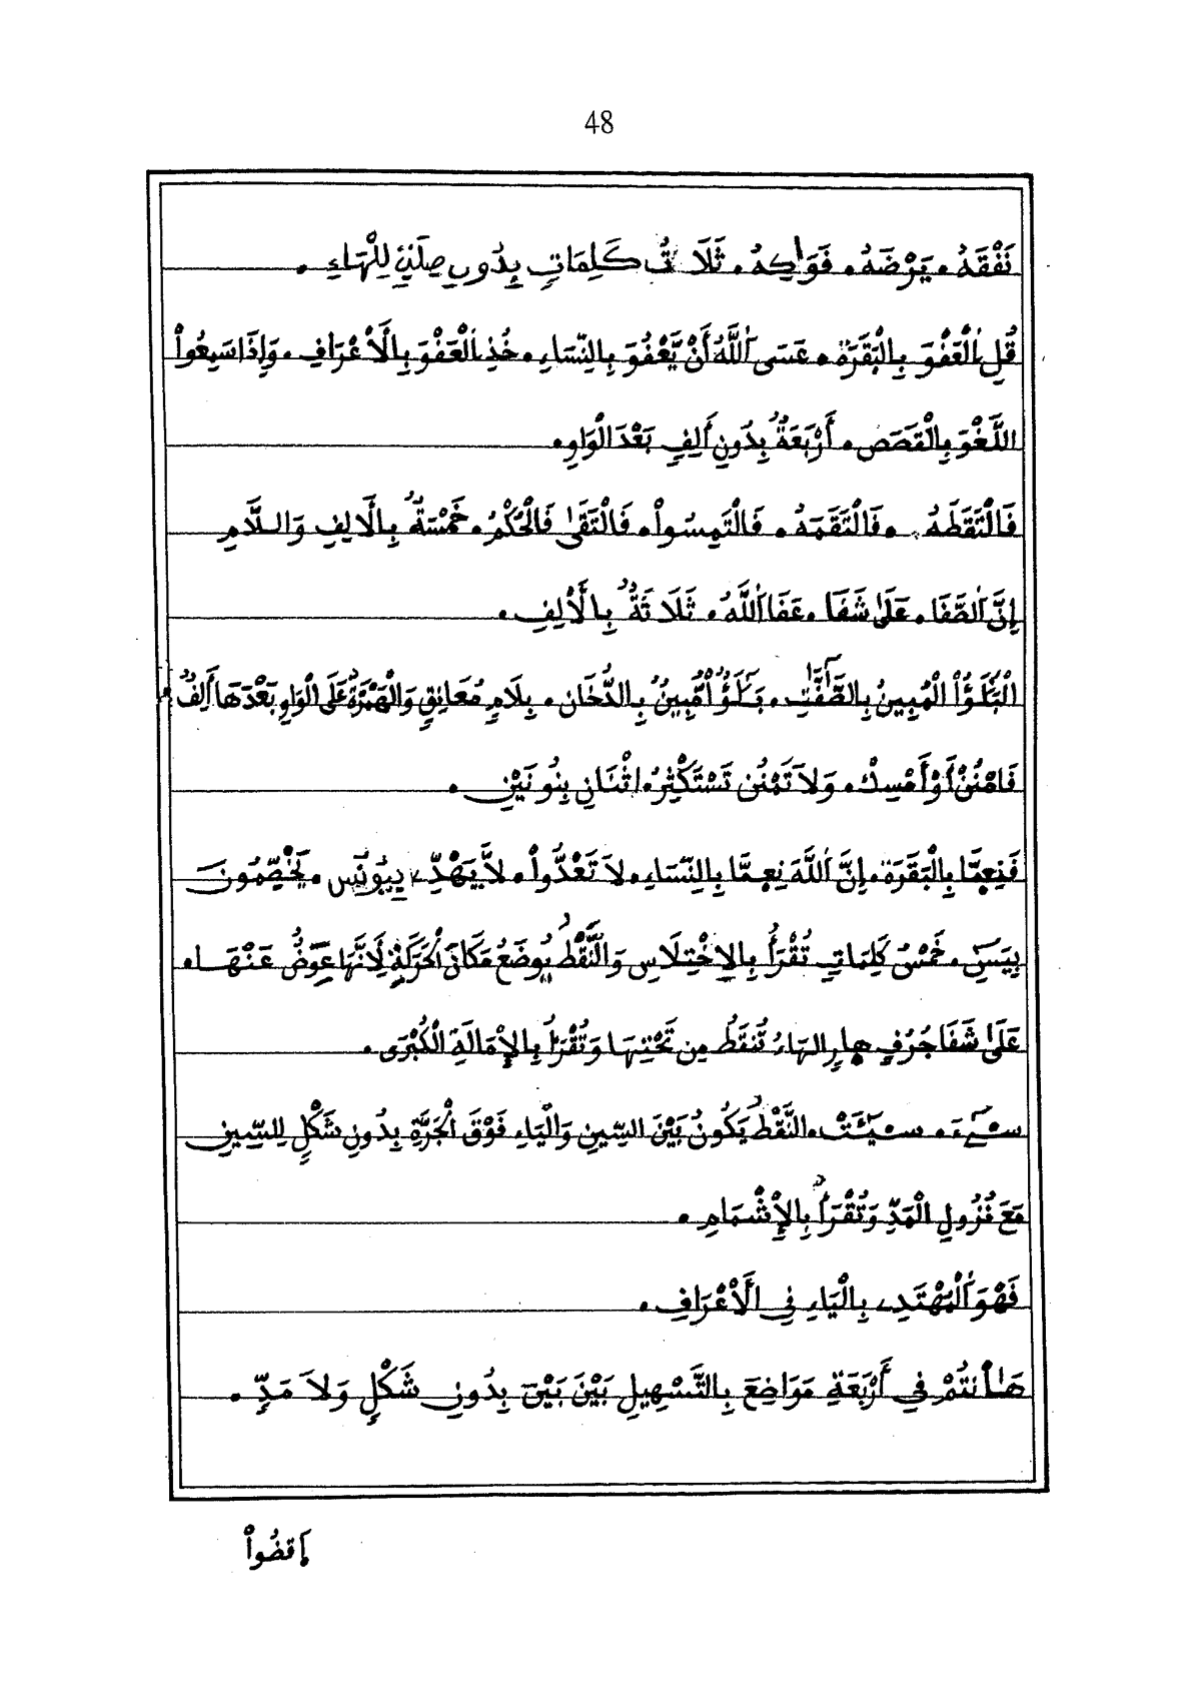 48
نَفْقَهُ. يَرْضَهُ. فَوَاكِهُ. ثَلَاثُ كَلِمَاتٍ بِدُونِ صِلَةٍ لِلْهَاءِ.
قُلِ الْعَفْوَ بِالْبَقَرَةِ. عَسَى اَللَّهُ أَنْ يَّعْفُوَ بِالنِّسَاءِ. خُذِ الْعَفْوَ بِالَاعْرَافِ. وَإِذَا سَمِعُواْ
اللَّغْوَ بِالْقَصَصِ. أَرْبَعَةٌ بِدُونِ أَلِفٍ بَعْدَ الْوَاوِ.
فَالْتَقَطَهُ. فَالْتَقَمَهُ. فَالْتَمِسُواْ. فَالْتَقَى فَالْحُكْمُ. خَمْسَةٌ بِالَالِفِ وَاللَّامِ
إِنَّ اَلصَّفَا. عَلَىٰ شَفَا. عَفَا اَللَّهُ. ثَلَاثَةٌ بِالَألِفِ.
الْبَلَٰٓؤُاْ الْمُبِينُ بِالصَّٰٓفَّٰتِ. بَلَٰٓؤٌاْ مُّبِينٌ بِالدُّخَانِ. بِلَامٍ مُعَانِقٍ وَالْهَمْزَةُ عَلَى الْوَاوِ بَعْدَهَا أَلِفٌ
فَامْنُنْ أَوْ أَمْسِكْ. وَلَا تَمْنُن تَسْتَكْثِرُ. اثْنَانِ بِنُونَيْنِ.
فَنِعِمَّا بِالْبَقَرَةِ. إِنَّ اَللَّهَ نِعِمَّا بِالنِّسَاءِ. لَا تَعْدُّواْ. لَا يَهْدِّے بِيُونُسَ. يَخْصِّمُونَ
بِيَسٓ. خَمْسُ كَلِمَاتٍ تُقْرَأُ بِالِاخْتِلَاسِ وَالنَّقْطُ يُوضَعُ مَكَانَ الْحَرَكَةِ لِأَنَّهَا عِوَضٌ عَنْهَا.
عَلَىٰ شَفَا جُرُفٍ هارٍ الهَاءُ تُنقَطُ مِن تَحْتِهَا وَتُقْرَأُ بِالْإِمَالَةِ الْكُبْرَى.
سےٓءَ. سيٓـَٔتْ. النَّقْطُ يَكُونُ بَيْنَ السِّينِ وَالْيَاءِ فَوْقَ الْجَرَّةِ بِدُونِ شَكْلٍ لِلسِّينِ
مَعَ نُزُولِ الْمَدِّ وَتُقْرَأُ بِالْإِشْمَامِ.
فَهْوَ اَلْمُهْتَدِے بِالْيَاءِ فِي الَأعْرَافِ.
هَٰأَنتُمْ فِي أَرْبَعَةِ مَوَاضِعَ بِالتَّسْهِيلِ بَيْنَ بَيْنَ بِدُونِ شَكْلٍ وَلَا مَدٍّ.
اَقضُواْ